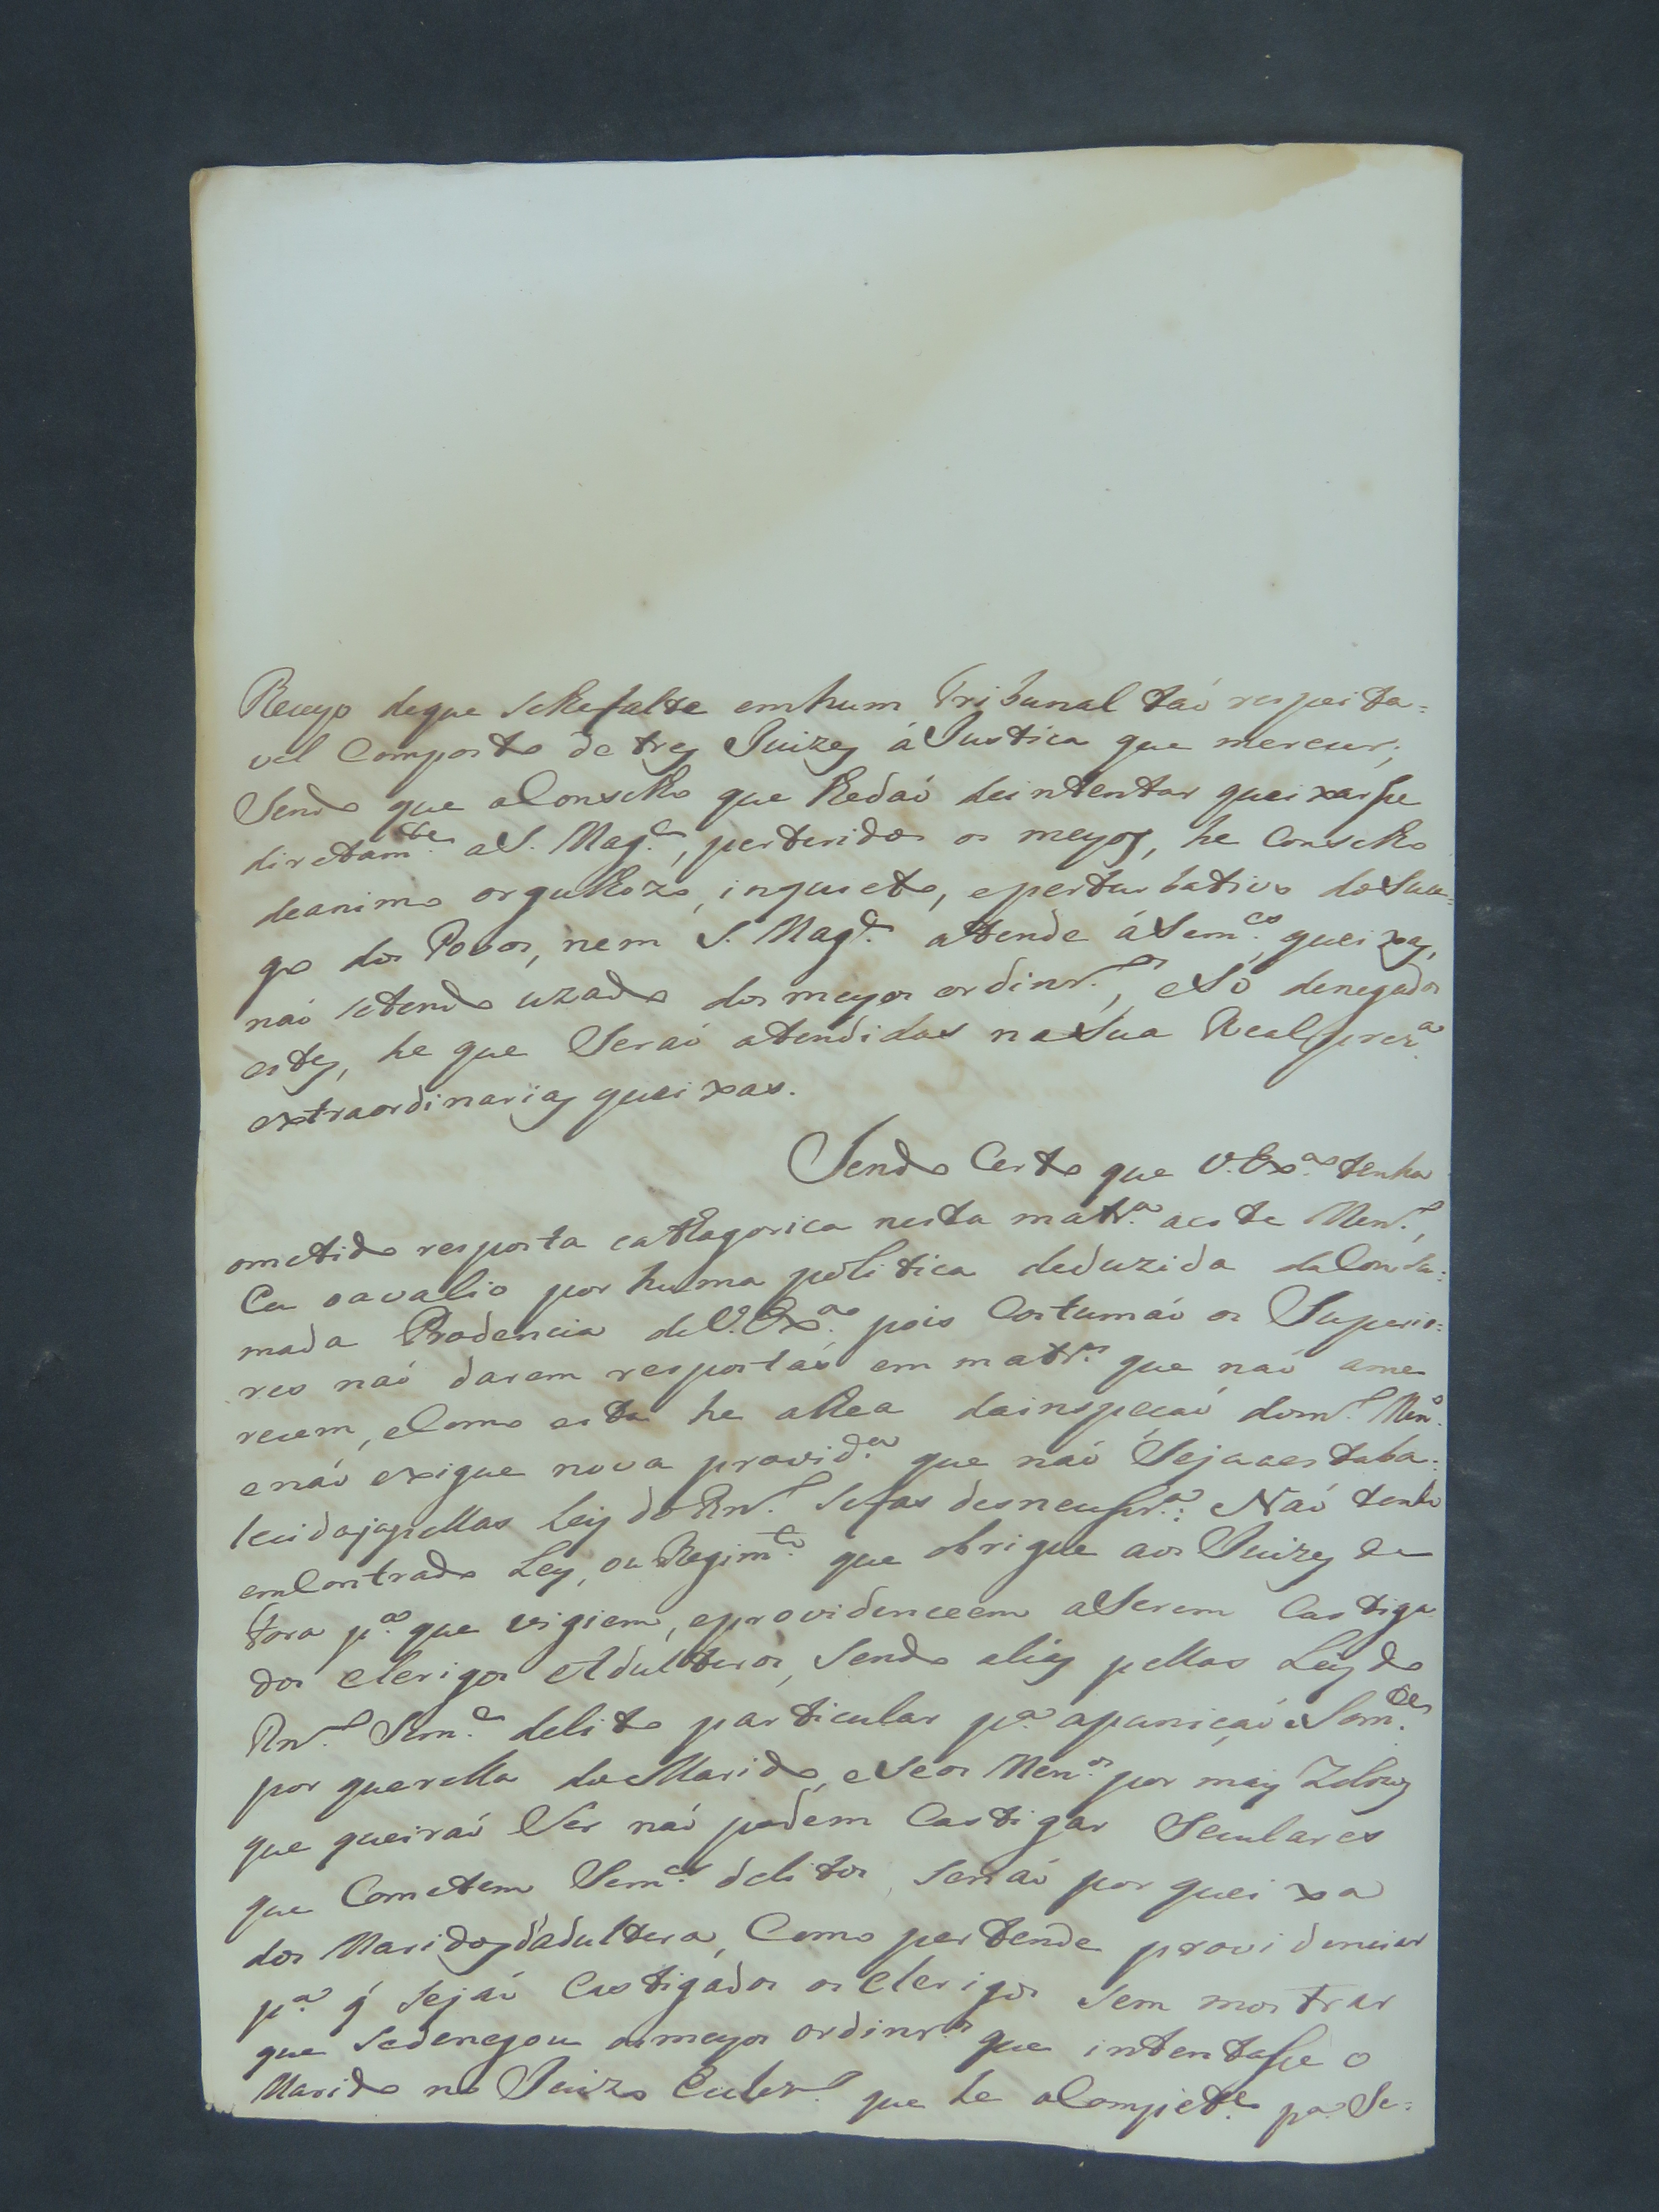 Receyo deque selhefalte emhum Tribunal taó respeita=
vel Composto de trez Juizez á Justica que merecer;
Sendo que oConselho que lhedaó deintentar queixarse
diretam.te aS. Mag.e, perteridos os meyos, he Conselho
deanimo orgulhozo, inquieto, eperturbativo doSuce=
go dos Povos, nem S. Mag.e attende áSem.es queixas,
naó setendo uzado dos meyos ordinr.os, eSó denegados
estez, he que Seraó atendidas naSua Real prez.a
extraordinariaz queixas.
Sendo Certo que V. Ex.a tenha
ometido resposta cathagorica nesta matr.a aeste Men.o,
Eu oavalio por huma politica deduzida daConsu=
mada Prodencia deV. Ex.a pois Costumaó os Superio=
res naó darem respostas em matr.as que naó ame
recem, eComo esta he alhea dainspecaó dom.o Men.o
enaó exigue nova provid.a que naó Seja aestaba=
lecida ja pellas Leiz do Rn.o sefas desnecessr.a: Naó tenho
emContrado Ley, ou Regim.to que obrigue aos Juizez de
fora p.a que vigiem, eprovidenceem aSerem Castiga
dos clerigos Adulteros, Sendo aliez pellas Leiz do
Rn.o Sem.e delito particular p.a apunicaó eSom.te
por querella doMarido, eSeos Men.os por maiz Zelozoz
que queiraó Ser naó podem Castigar Seculares
que Cometem Sem.es delitos, senaó por queixa
dos Maridoz d'adultera, Como pertende providenciar
p.a q́ sejaó Castigados os clerigos sem mostrar
que sedenegou os meyos ordinr.os que intentasse o
Marido no Juizo Ecclez.o que he oCompet.e p.a Se=